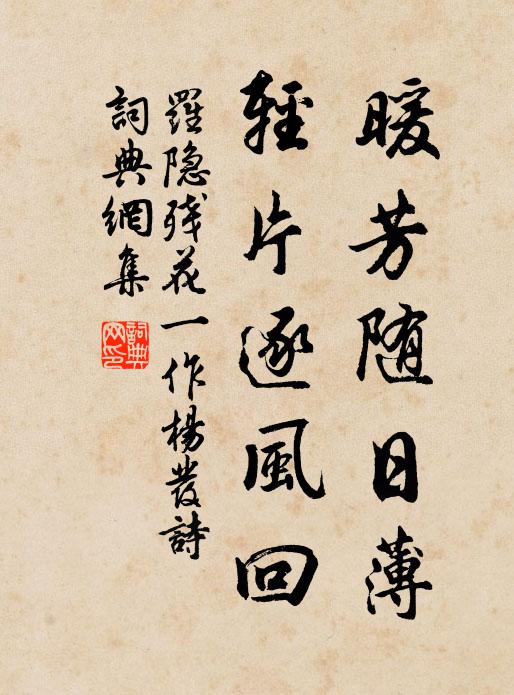 暖芳随日薄
輕片逐風回
羅隐残花一作楊發詩
詞典網集
詞典网印